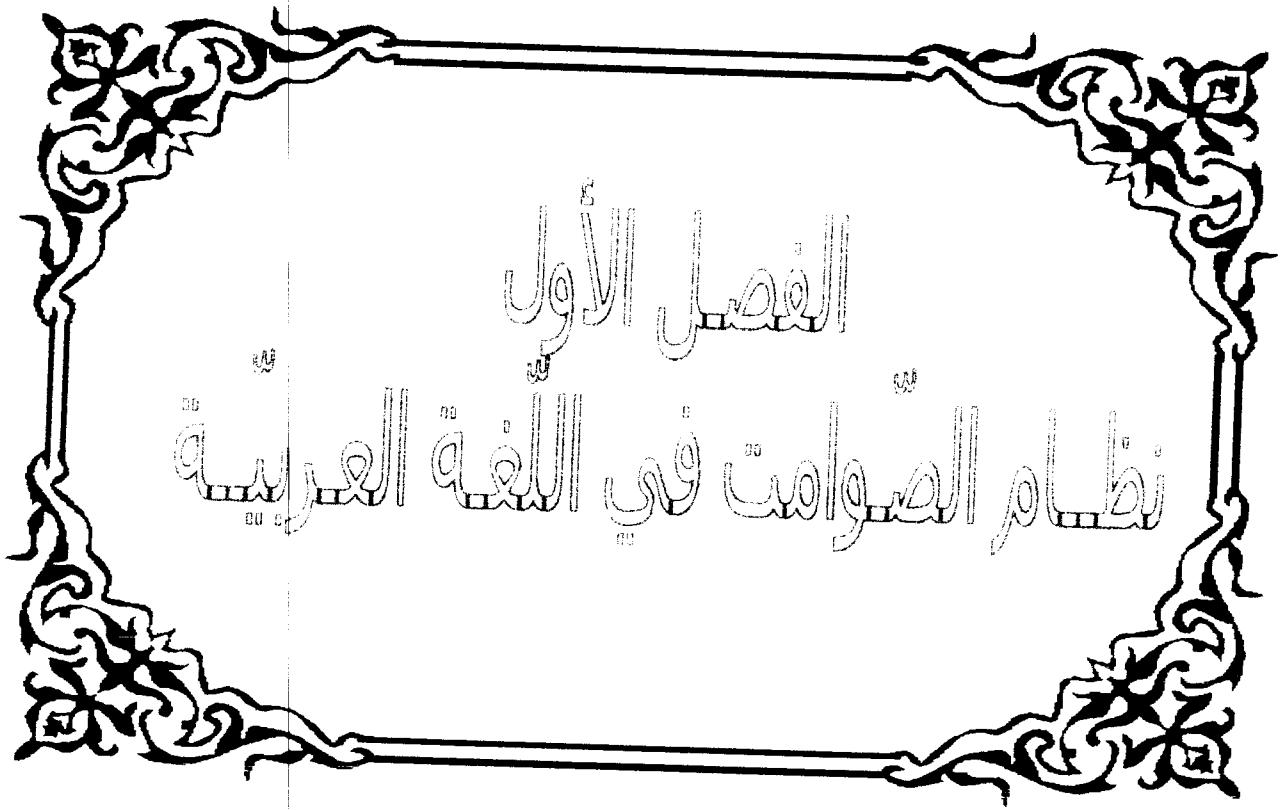 الفصل الأول
نظام الصّوامت في اللّغة العربيّة